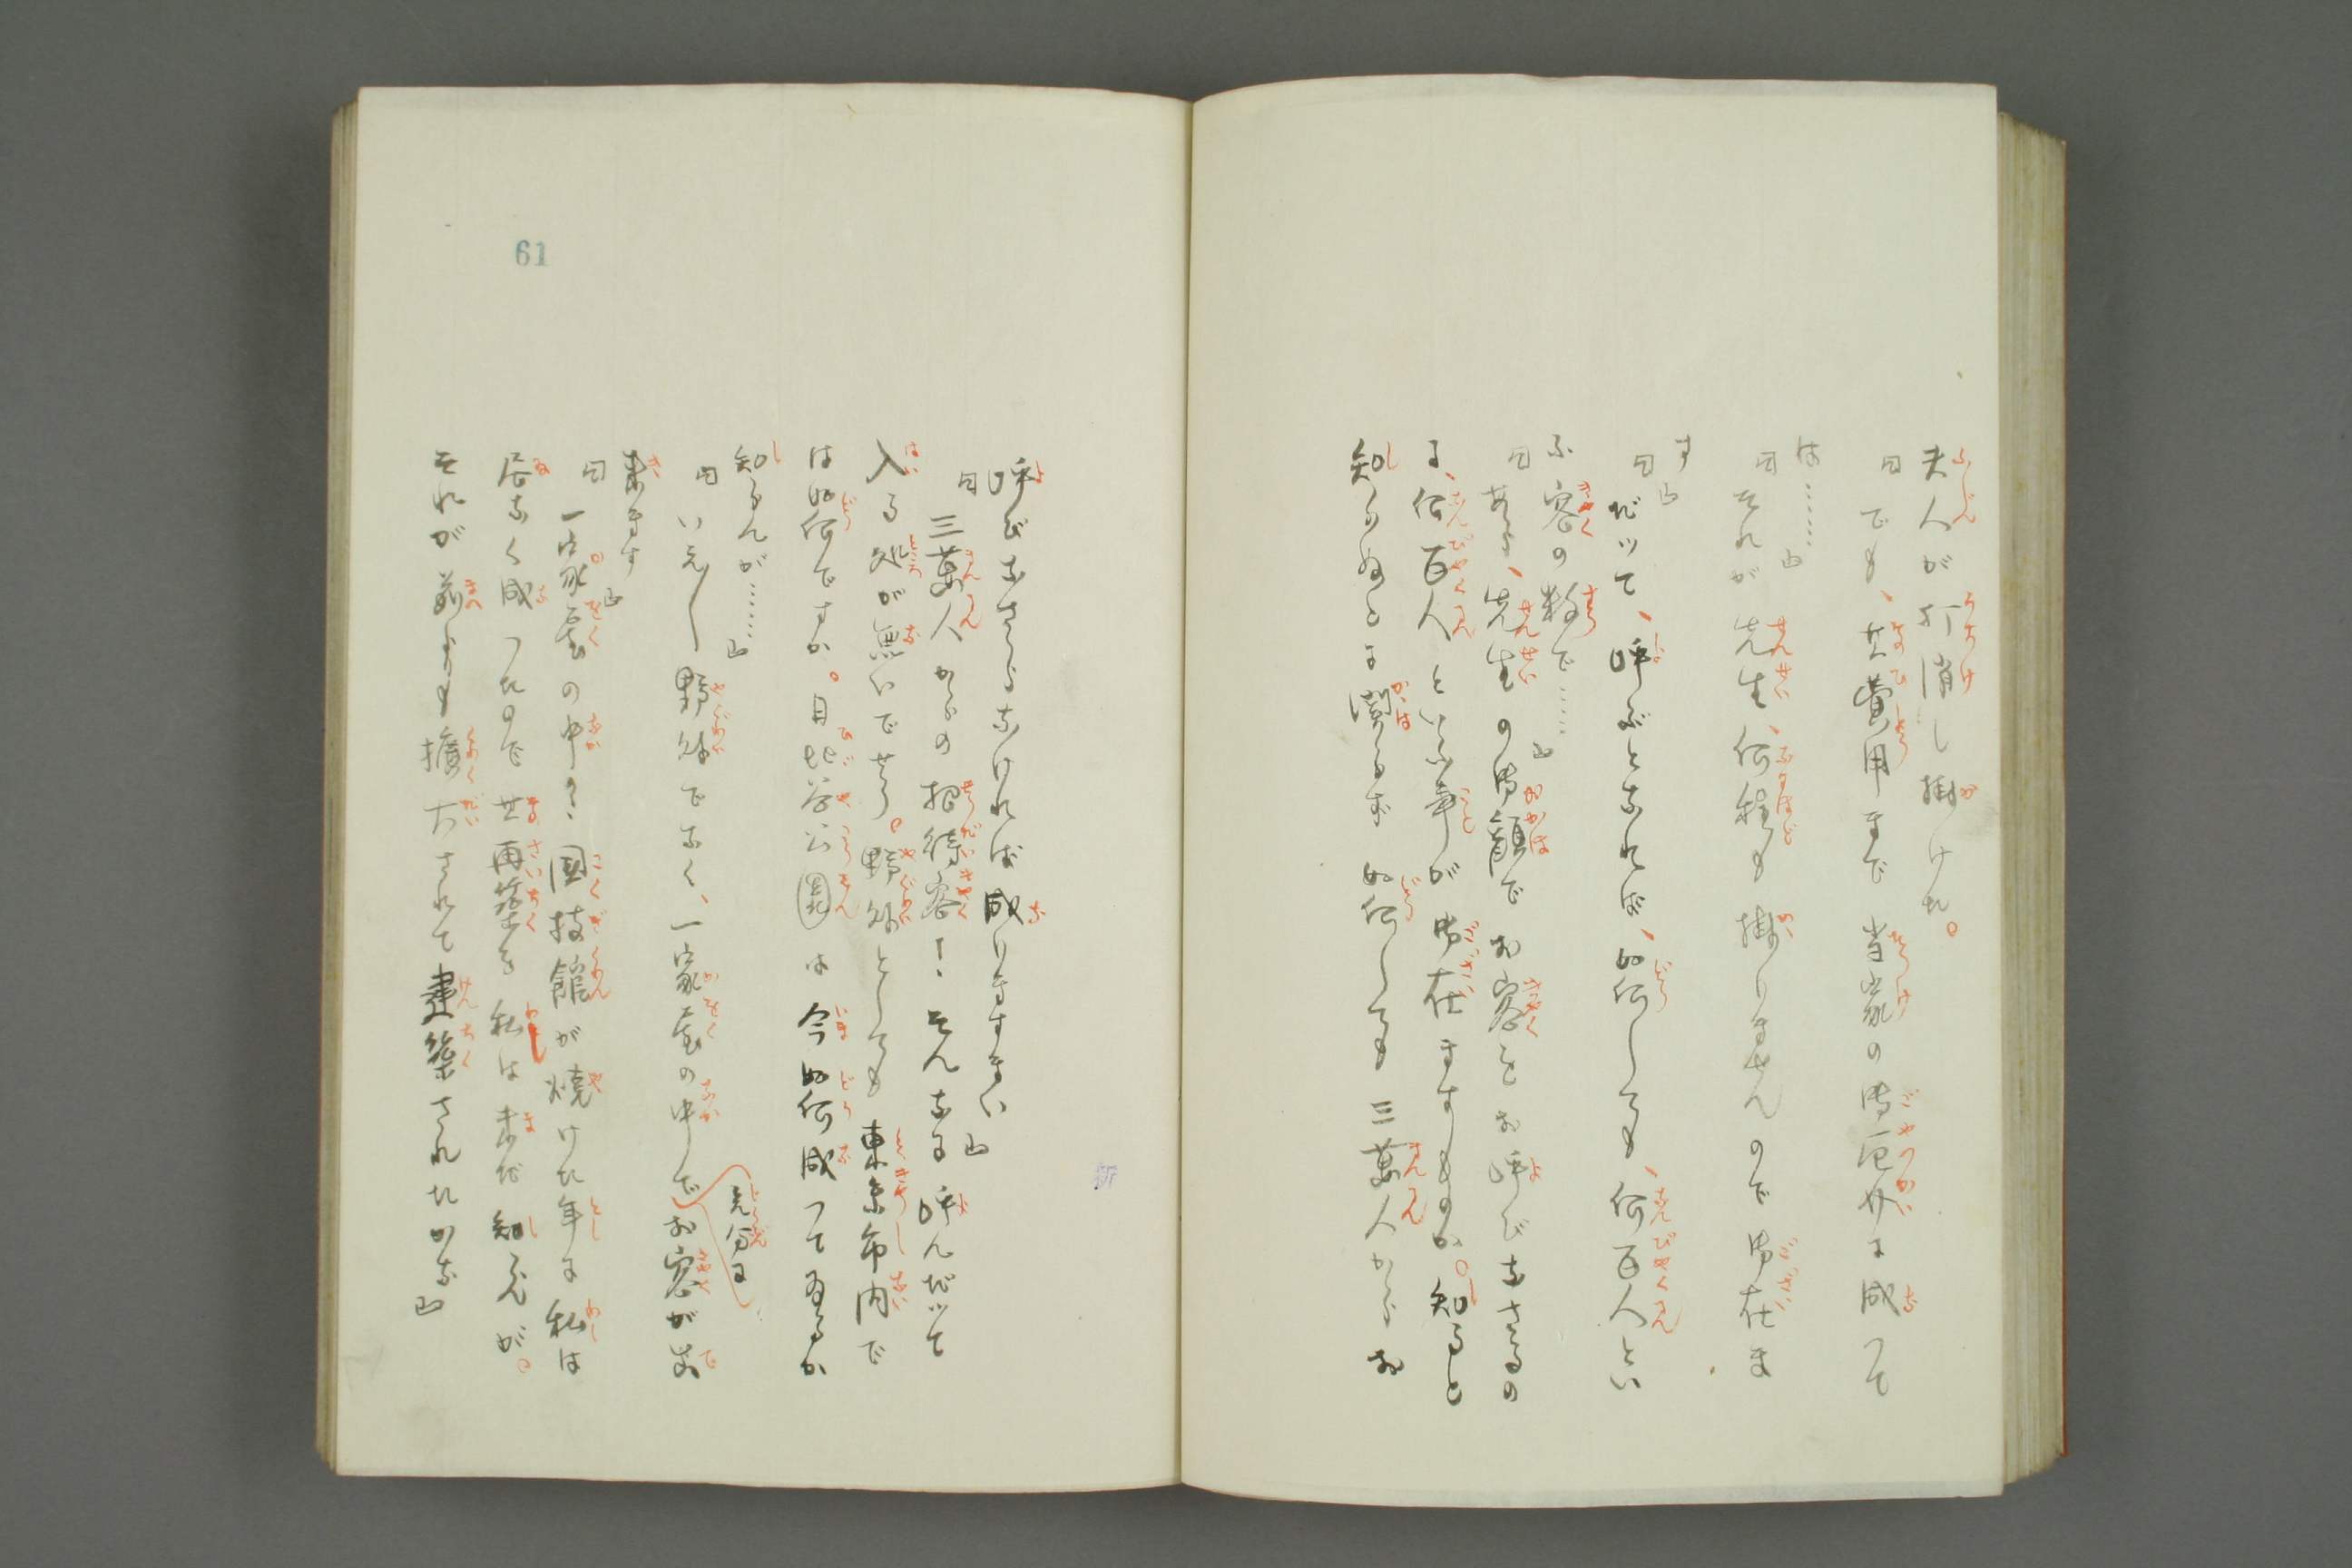 夫人が打消し掛けた。
「でも、其費用まで当家の御厄介に成つて
は……」
「それが先生、何程も掛りませんので御在ま
す」
「だツて、呼ぶとなれば、如何しても、何百人とい
ふ客の数で……」
「あら、先生の御顔でお客をお呼びなさるの
に、何百人といふ事が御在ますものか。知ると
知らぬとに関らず如何しても三萬人からお
呼びなさらなければ成りますまい」
「三萬人からの招待客!そんなに呼んだツて
入る処が無いでせう。野外としても東京市内で
は如何ですか。日比谷公園は今如何成つてゐるか
知らんが……」
「いえ〳〵野外でなく、一家屋の中で充分にお客が出
来ます」
「一家屋の中?国技館が焼けた年に私は
居なく成つたので其再築を私は未だ知らんが。
それが前よりも擴大されて建築されたかな」
61